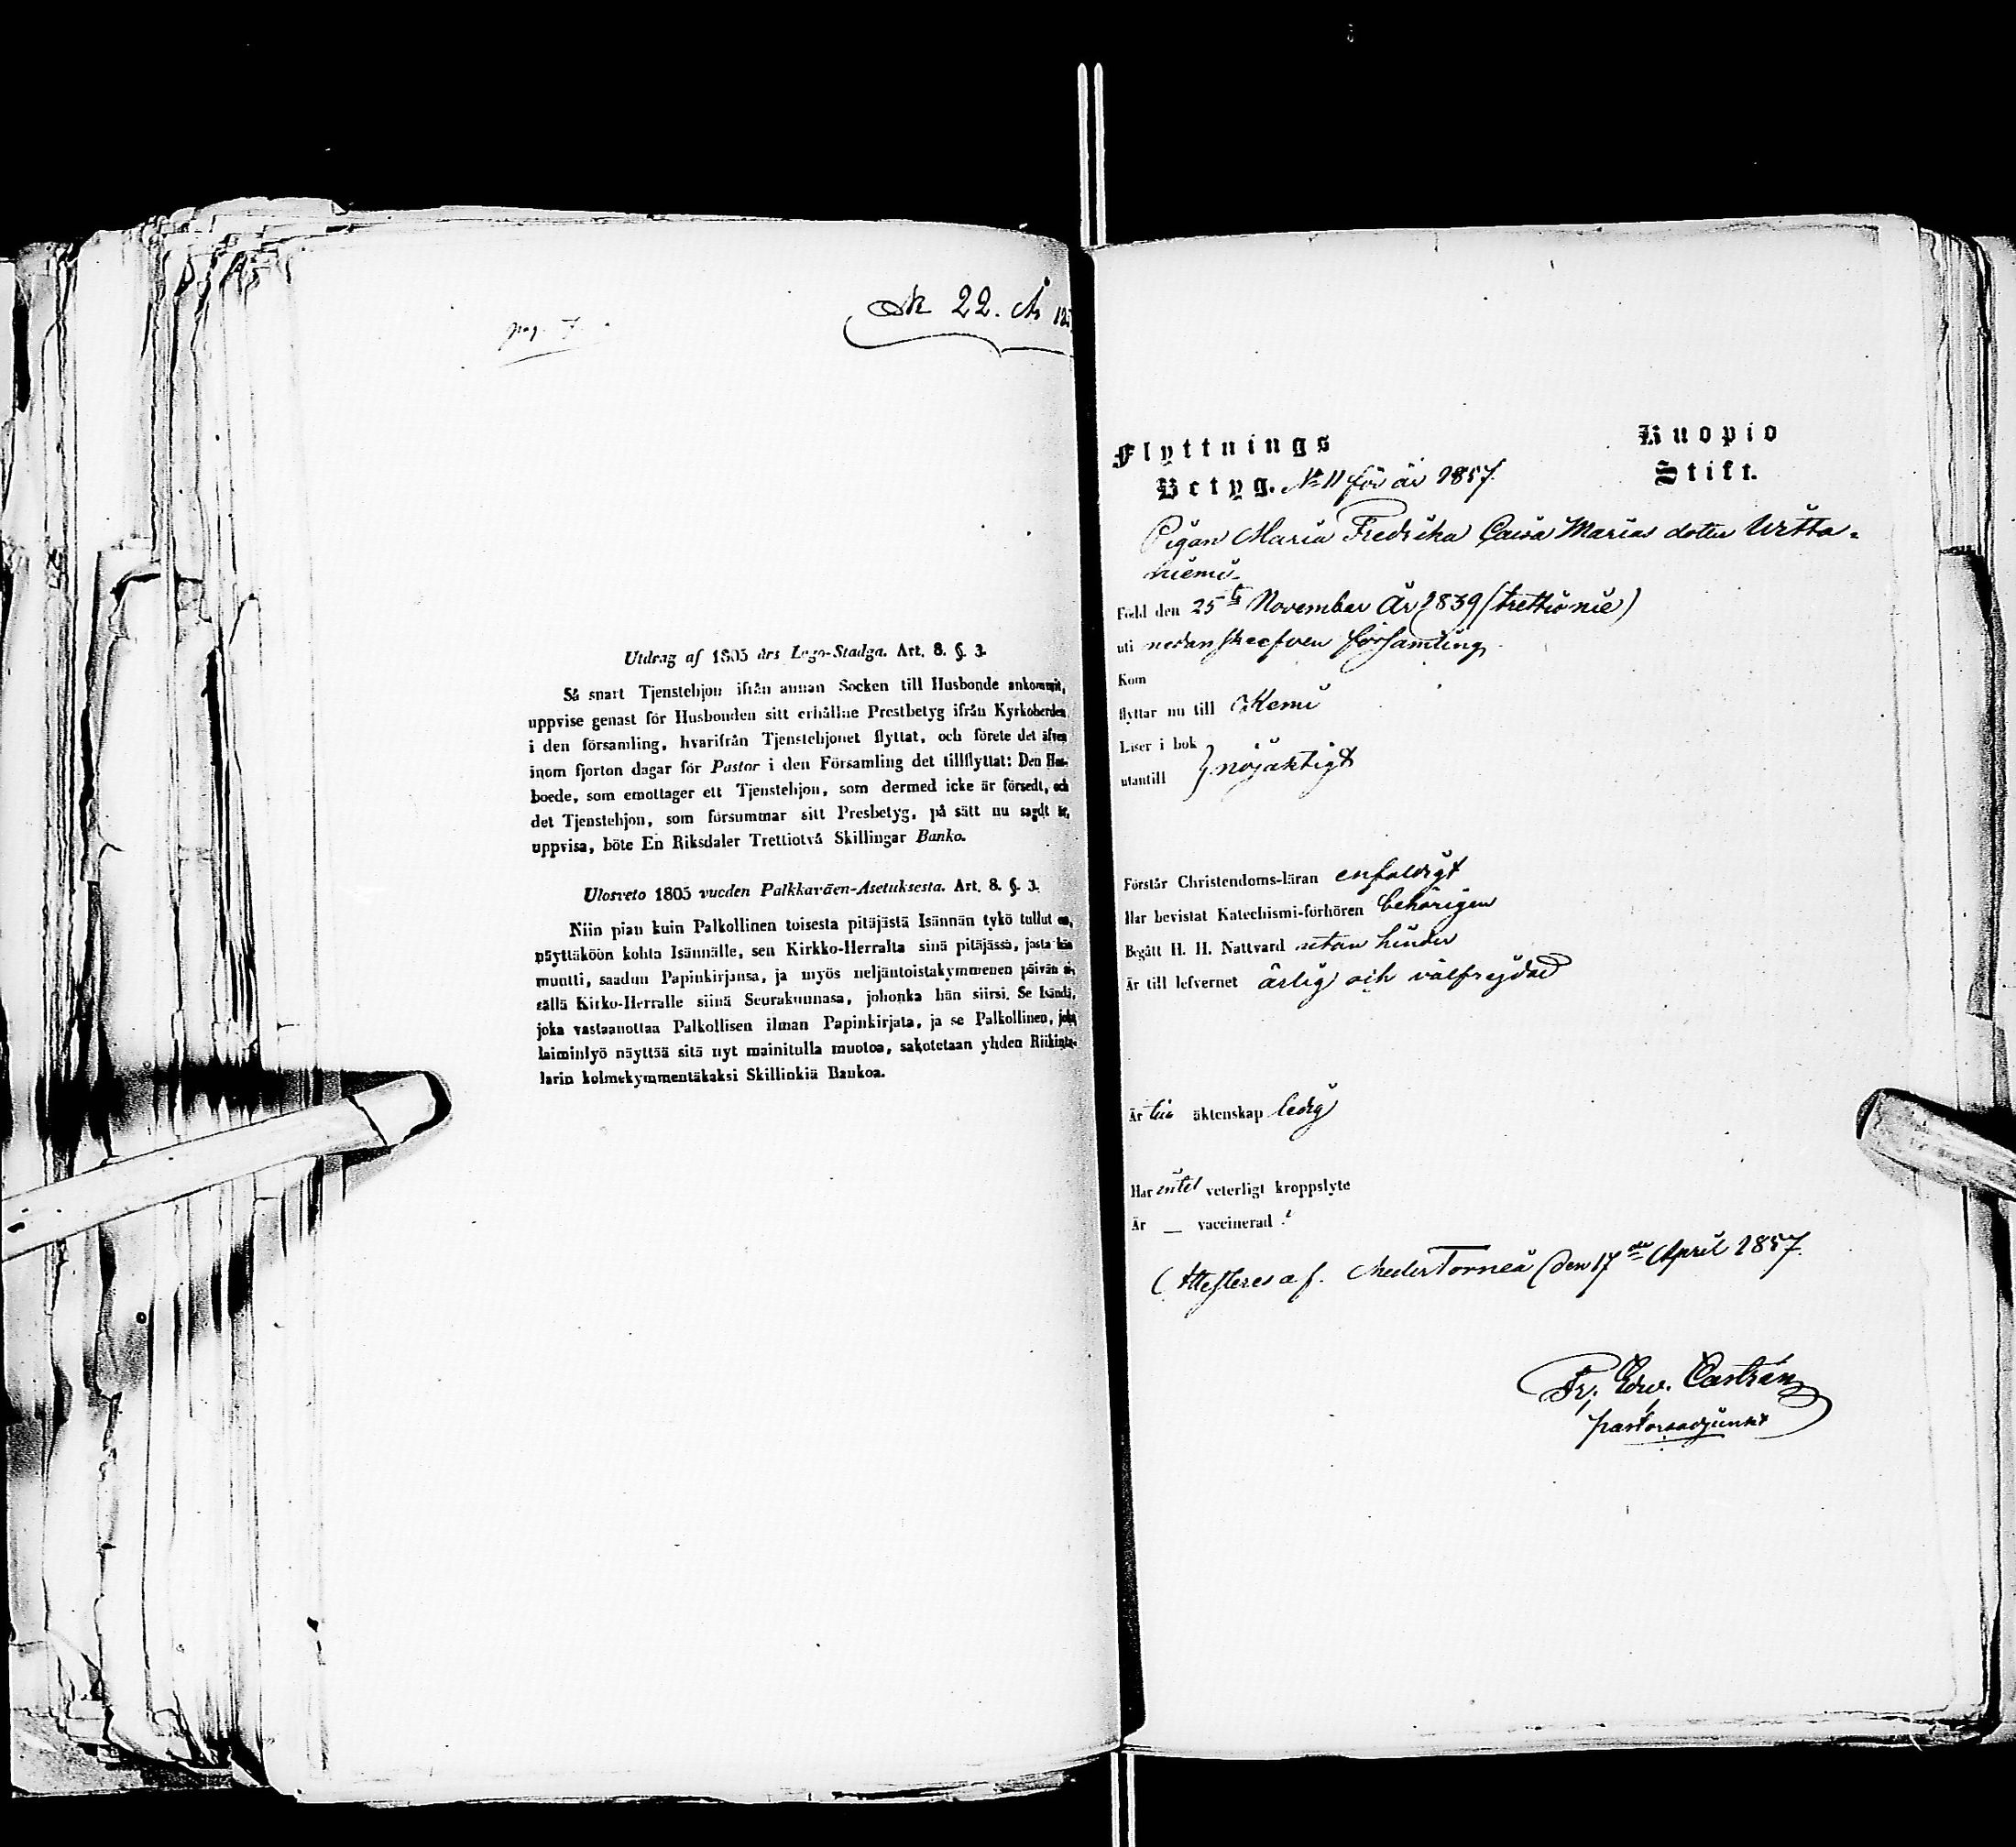 pag. 7.
№ 22. År 185
Utdrag af 1805 års Lego-Stadga. Art. 8. §. 3.
Så snart Tjenstehjon ifrån annan Socken till Husbonde ankommit,
uppvise genast för Husbonden sitt erhållne Prestbetyg ifrån Kyrkoherden
i den församling, hvarifrån Tjenstehjonet flyttat, och förete det äfven
inom fjorton dagar för Pastor i den Församling det tillflyttat: Den Hus-
boede, som emottager ett Tjenstehjon, som dermed icke är försedt, och
det Tjenstehjon, som försummar sitt Presbetyg, på sätt nu sagdt är,
uppvisa, böte En Riksdaler Trettiotvå Skillingar Banko.
Ulosveto 1805 vuoden Palkkaväen-Asetuksesta. Art. 8. §. 3.
Niin pian kuin Palkollinen toisesta pitäjästä Isännän tykö tullut on,
näyttäköön kohta Isännälle, sen Kirkko-Herralta sinä pitäjässä, josta hän
muutti, saadun Papinkirjansa, ja myös neljäntoistakymmenen päivän si-
sällä Kirko-Herralle siinä Seurakunnasa, johonka hän siirsi. Se Isändä,
joka vastaanottaa Palkollisen ilman Papinkirjata, ja se Palkollinen, joka
laiminlyö näyttää sitä nyt mainitulla muotoa, sakotetaan yhden Riikinta-
larin kolmekymmentäkaksi Skillinkiä Bankoa.
Flyttnings
Betyg. № 11 för år 1857.
Kuopio
Stift.
Pigan Maria Fredrika Caisa Marias dotter Witta-
niemi
Född den 25te November År 1839 (trettionie)
uti nedanskrefven församling
Kom
flyttar nu till Kemi
Läser i bok
utantill } nöjaktigt
Förstår Christendoms-läran enfaldigt
Har bevistat Katechismi-förhören behörigen
Begått H. H. Nattvard utan hinder
Är till lefvernet ärlig och välfrejdad
Är till äktenskap ledig
Har intet veterligt kroppslyte
Är — vaccinerad
Attesteres af. NederTorneå den 17de April 1857.
Fr. Edw. Castrén
pastorsadjunkt